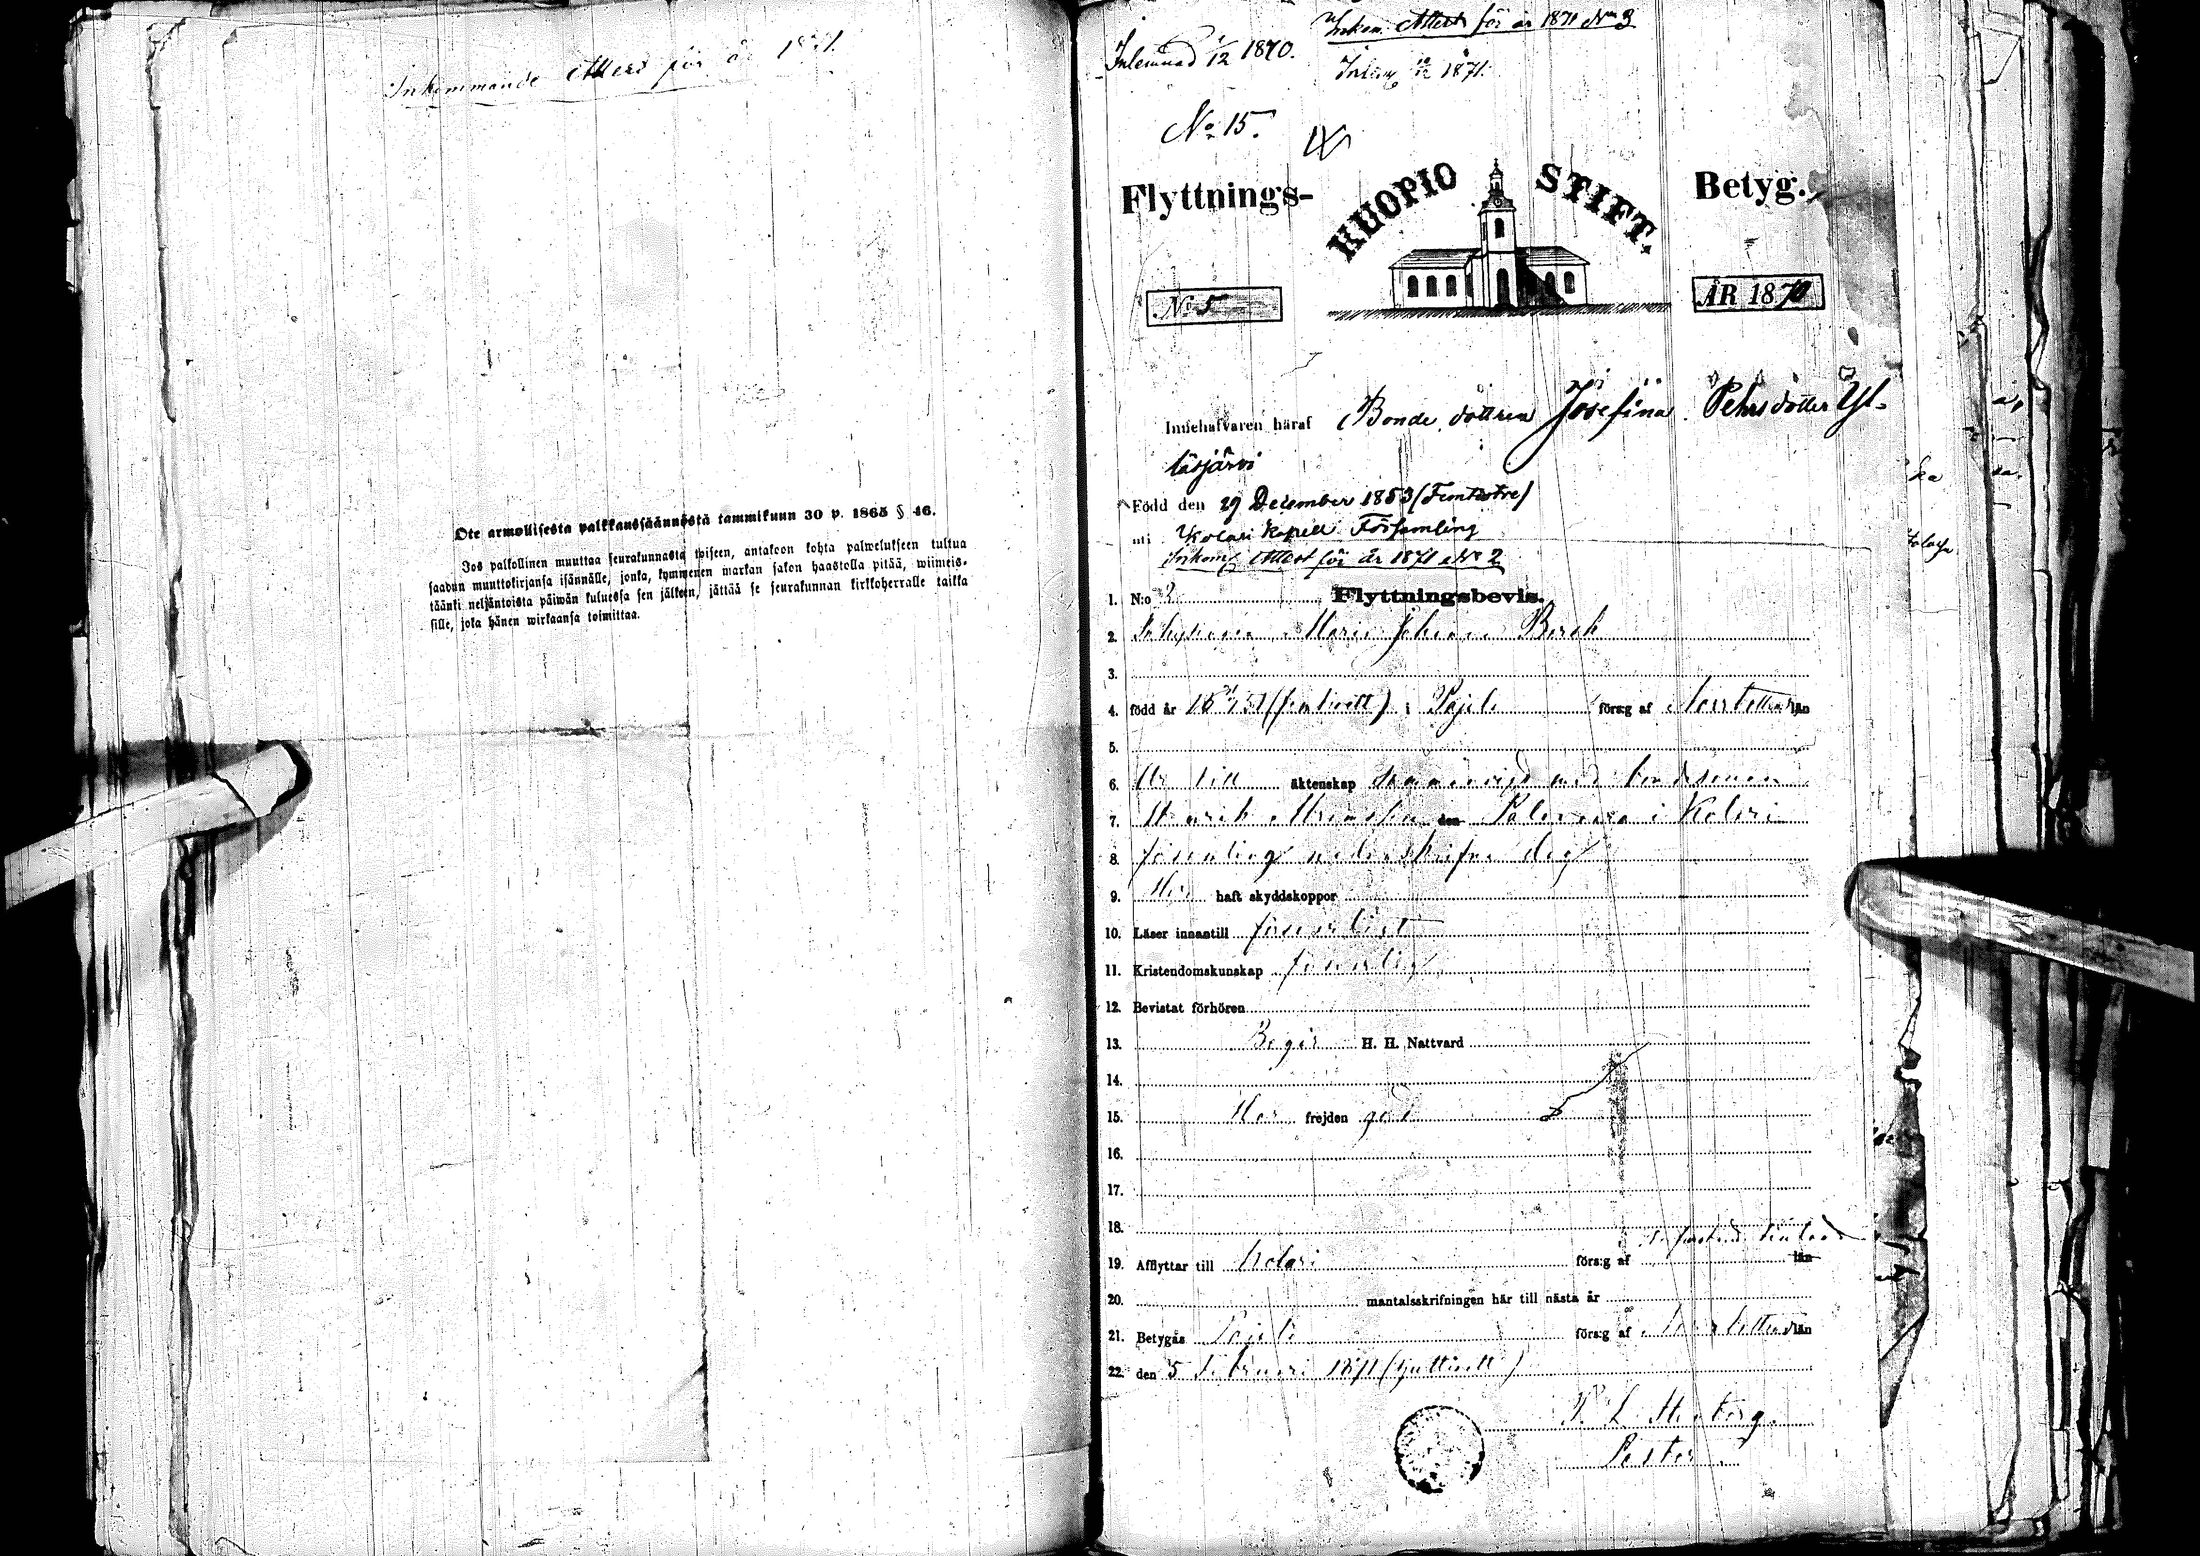 Inkommande Attest för år 1871.
Ote armollisesta palkkaussäännöstä tammikuun 30 p. 1865 § 46.
Jos palkollinen muuttaa seurakunnasta toiseen, antakoon kohta palwelukseen tultua
saadun muuttokirjansa isännälle, jonka, kymmenen markan sakon haastolla pitää, wiimeis-
täänki neljäntoista päiwän kuluessa sen jälkeen, jättää se seurakunnan kirkkoherralle taikka
sille, joka hänen wirkaansa toimittaa.
Inkom. Attest för år 1871 No 3
Inlemnad 1/12 1870.
1871.
No 15.
Flyttnings- KUOPIO STIFT. Betyg.
No 5 ÅR 1870
Innehafvaren häraf Bonde dottren Josefina Pehrsdotter Yl-
läsjärvi
Född den 29 December 1853 (Femtiotre)
uti Kolari Kapell Församling
Inkom. Attest för år 1871 No 2
1. N:o 2 Flyttningsbevis.
2. Maria Johanna
3.
4. född år (femtioett) i Pajala förs:g af Norrbottens län
5.
6. Är till äktenskap med bondesonen
7. Henrik den i Kolari
8. församling dag
9. Har haft skyddskoppor
10. Läser innantill försvarligt
11. Kristendomskunskap försvarlig
12. Bevistat förhören
13. Begår H. H. Nattvard
14.
15. Har frejden god
16.
17.
18.
19. Afflyttar till Kolari förs:g af Finland län
20. mantalsskrifningen här till nästa år
21. Betygas Pajala förs:g af Norrbottens län
22. den 5 Februari 1871 (sjuttioett)
P. L.
Pastor